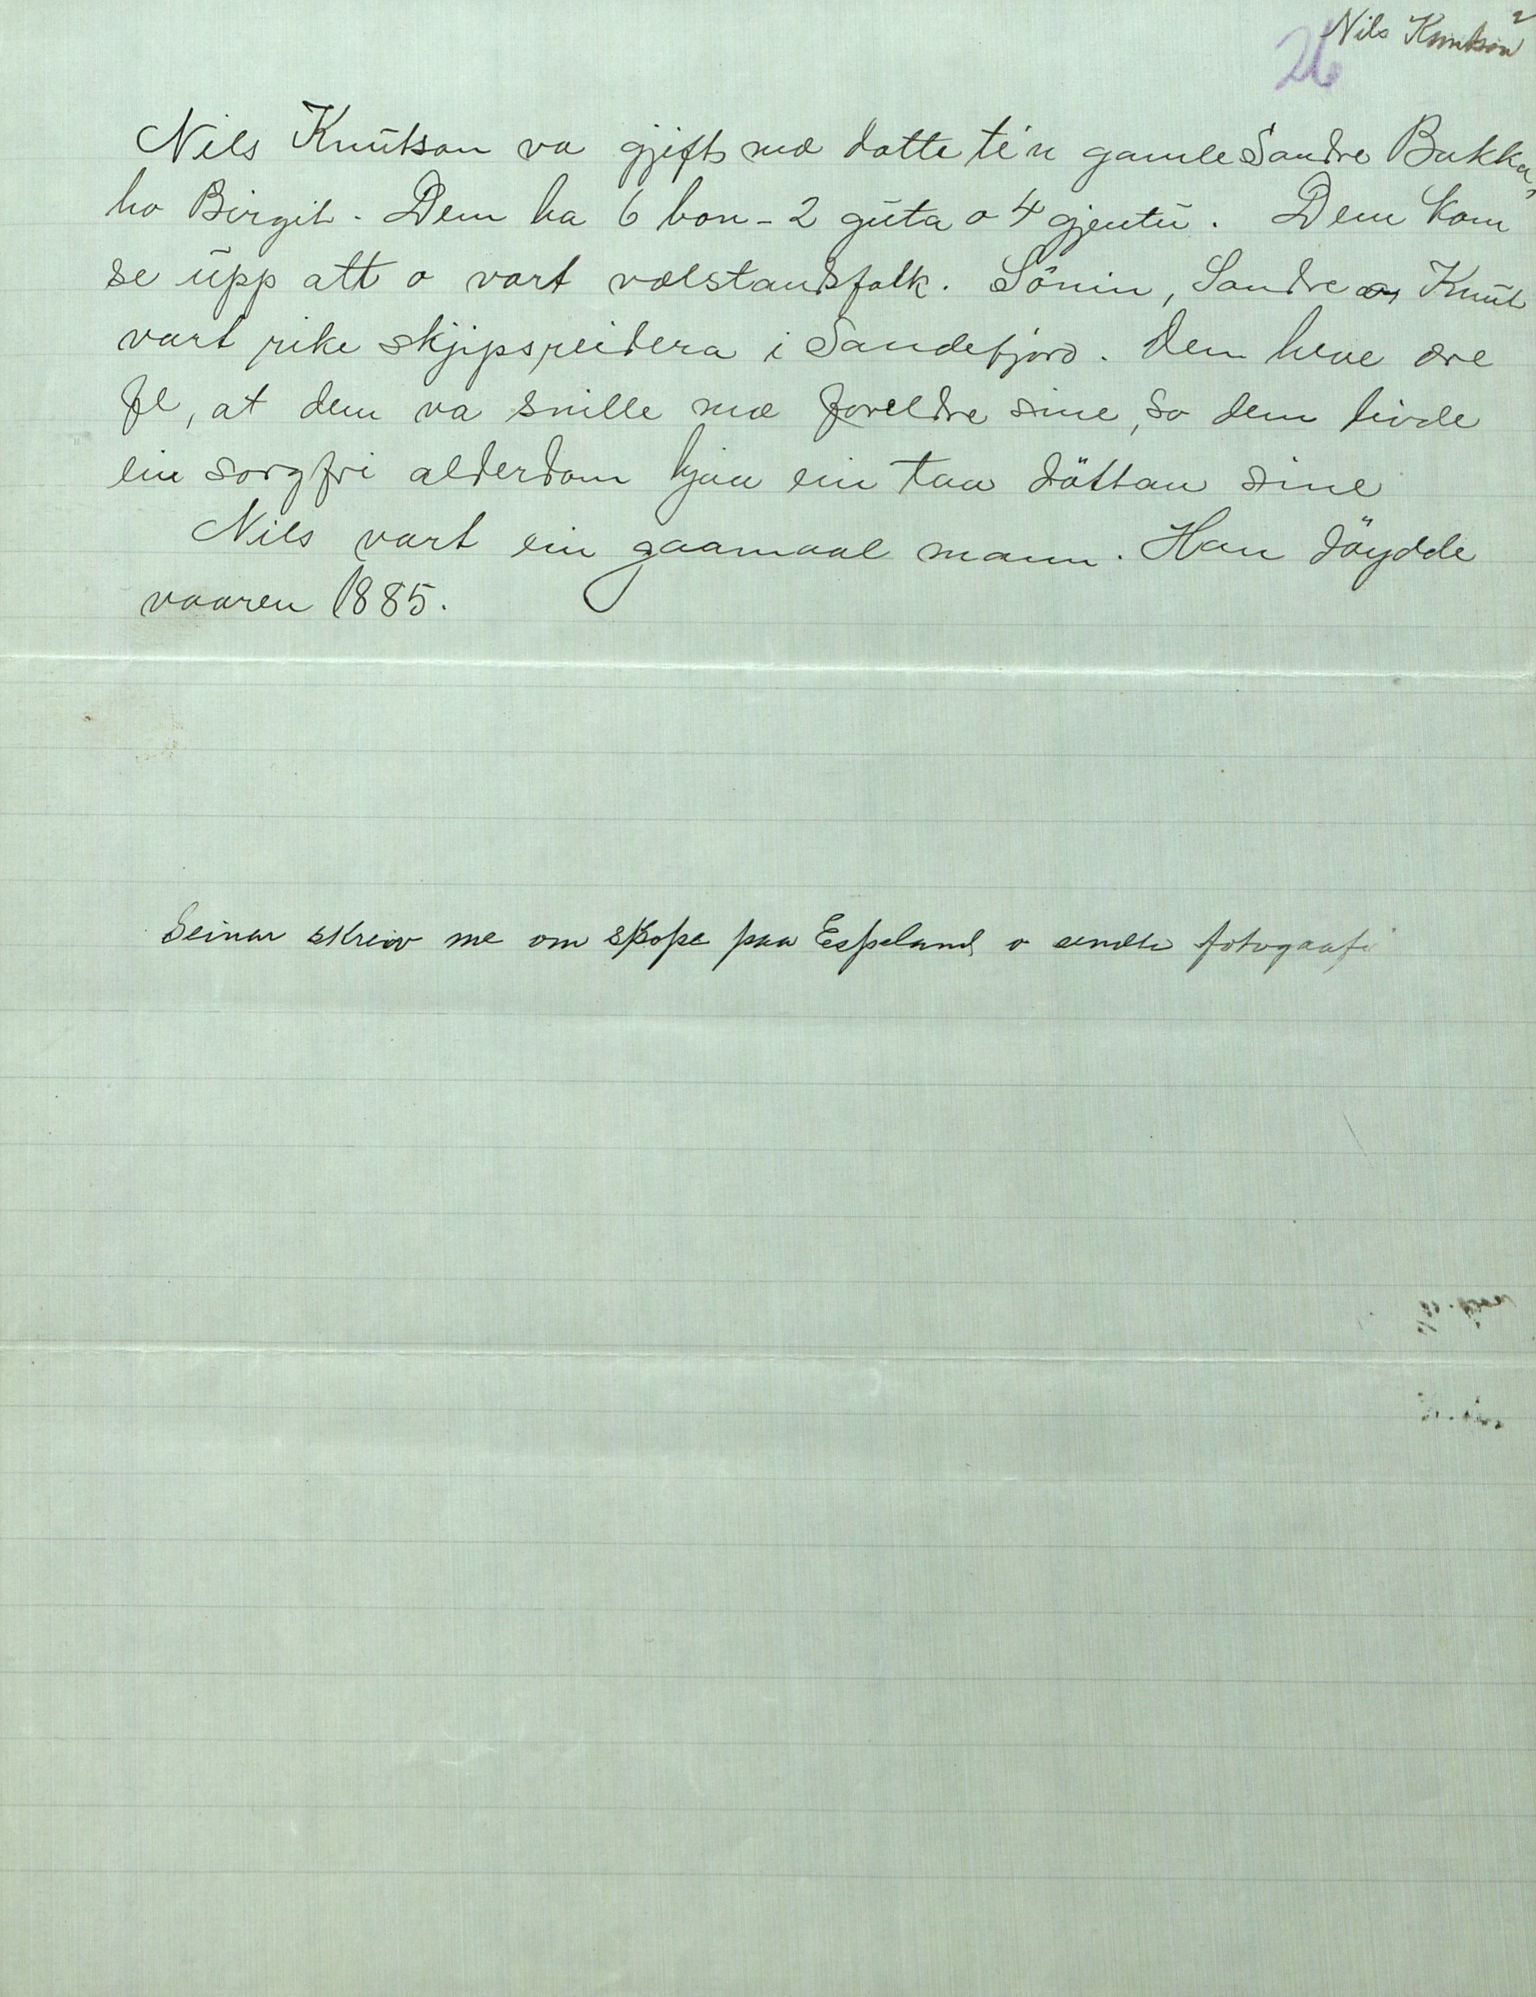 Nils Knutson 2
26
Nils Knutson va gjift mæ dotte te'n gamle Sandre Bakka,
ho Birgit. Dem ha 6 bon - 2 guta o 4 gjentu. Dem kom
se upp att o vart vælstandsfolk. Sönin, Sandre o Knut
vart rike skjipsreidera i Sandefjord. Dem heve ære
fe, at dem va snille mæ foreldre sine, so dem livde
ein sorgfri alderdom hjaa ein taa döttau sine
Nils vart ein gaamaal mann. Han döydde
vaaren 1885.
skreiv me om skope paa Espeland o sendte fotograafi